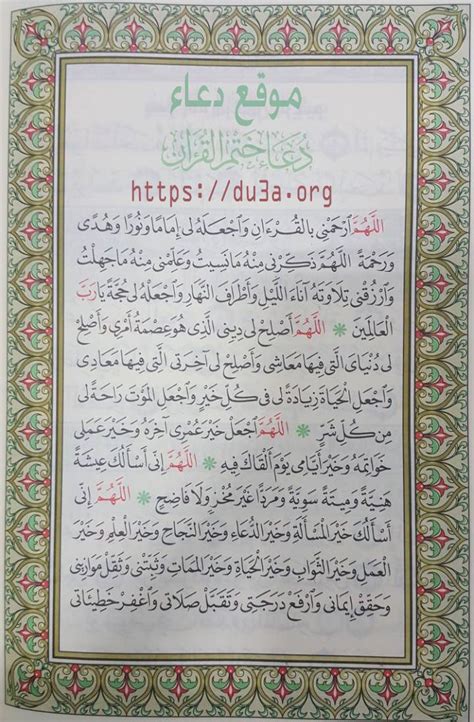 موقع دعاء
دُعَاءُ خَتْمِ الْقُرْآنِ
https://du3a.org
اَللَّهُمَّ ٱرْحَمْنِي بِالْقُرْءَانِ وَٱجْعَلْهُ لِي إِمَامًا وَنُورًا وَهُدًى
وَرَحْمَةً اَللَّهُمَّ ذَكِّرْنِي مِنْهُ مَا نَسِيتُ وَعَلِّمْنِي مِنْهُ مَا جَهِلْتُ
وَٱرْزُقْنِي تِلَاوَتَهُ آنَاءَ اللَّيْلِ وَأَطْرَافَ النَّهَارِ وَٱجْعَلْهُ لِي حُجَّةً يَا رَبَّ
الْعَالَمِينَ * اَللَّهُمَّ أَصْلِحْ لِي دِينِي الَّذِي هُوَ عِصْمَةُ أَمْرِي وَأَصْلِحْ
لِي دُنْيَايَ الَّتِي فِيهَا مَعَاشِي وَأَصْلِحْ لِي آخِرَتِي الَّتِي فِيهَا مَعَادِي
وَٱجْعَلِ الْحَيَاةَ زِيَادَةً لِي فِي كُلِّ خَيْرٍ وَٱجْعَلِ الْمَوْتَ رَاحَةً لِي
مِنْ كُلِّ شَرٍّ * اَللَّهُمَّ ٱجْعَلْ خَيْرَ عُمْرِي آخِرَهُ وَخَيْرَ عَمَلِي
خَوَاتِمَهُ وَخَيْرَ أَيَّامِي يَوْمَ أَلْقَاكَ فِيهِ * اَللَّهُمَّ إِنِّي أَسْأَلُكَ عِيشَةً
هَنِيَّةً وَمِيتَةً سَوِيَّةً وَمَرَدًّا غَيْرَ مُخْزٍ وَلَا فَاضِحٍ * اَللَّهُمَّ إِنِّي
أَسْأَلُكَ خَيْرَ الْمَسْأَلَةِ وَخَيْرَ الدُّعَاءِ وَخَيْرَ النَّجَاحِ وَخَيْرَ الْعِلْمِ وَخَيْرَ
الْعَمَلِ وَخَيْرَ الثَّوَابِ وَخَيْرَ الْحَيَاةِ وَخَيْرَ الْمَمَاتِ وَثَبِّتْنِي وَثَقِّلْ مَوَازِينِي
وَحَقِّقْ إِيمَانِي وَٱرْفَعْ دَرَجَتِي وَتَقَبَّلْ صَلَاتِي وَٱغْفِرْ خَطِيئَاتِي